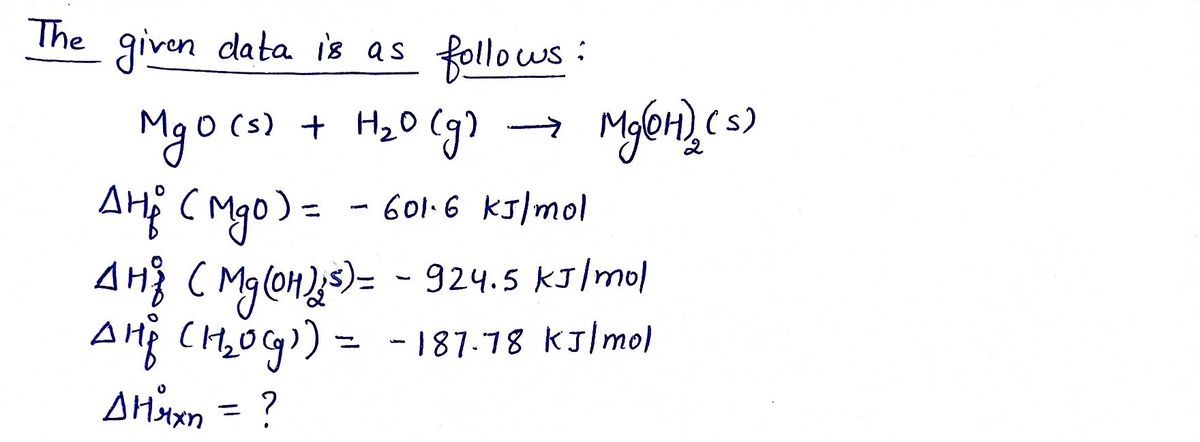 The given data is as follows:
MgO (s) + H₂O (g) → Mg(OH)₂ (s)
ΔHf° (MgO) = - 601.6 kJ/mol
ΔHf° (Mg(OH)₂,s) = - 924.5 kJ/mol
ΔHf° (H₂O(g)) = - 187.78 kJ/mol
ΔH°rxn = ?